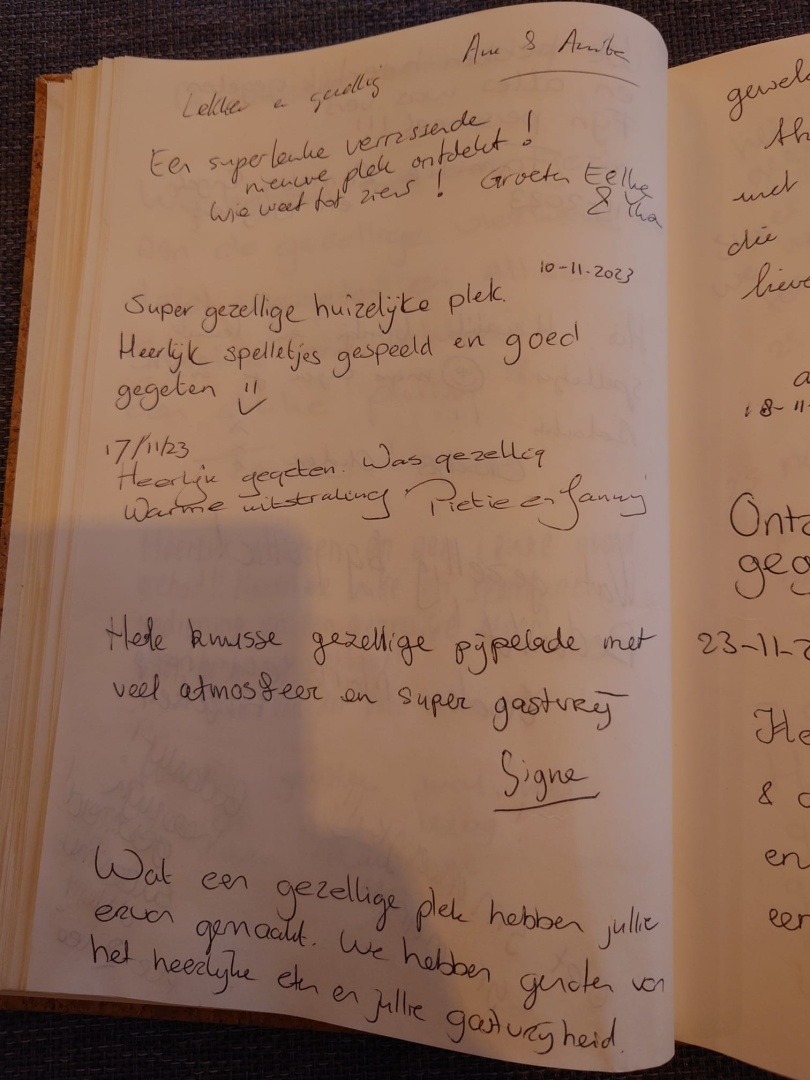 Lekker en gezellig
Een superleuke verrassende
nieuwe plek ontdekt!
Wie weet tot ziens! Groeten Eelke
&
10-11-2023
Super gezellige huizelijke plek.
Heerlijk spelletjes gespeeld en goed
gegeten
17/11/23
Heerlijk gegeten. Was gezellig
Warme uitstraling Pietie en Janny
Hele knusse gezellige pijpelade met
veel atmosfeer en super gastvrij
Signe
Wat een gezellige plek hebben jullie
ervan gemaakt. We hebben genoten van
het heerlijke eten en jullie gastvrijheid.
met
die
23-11-2
&
en